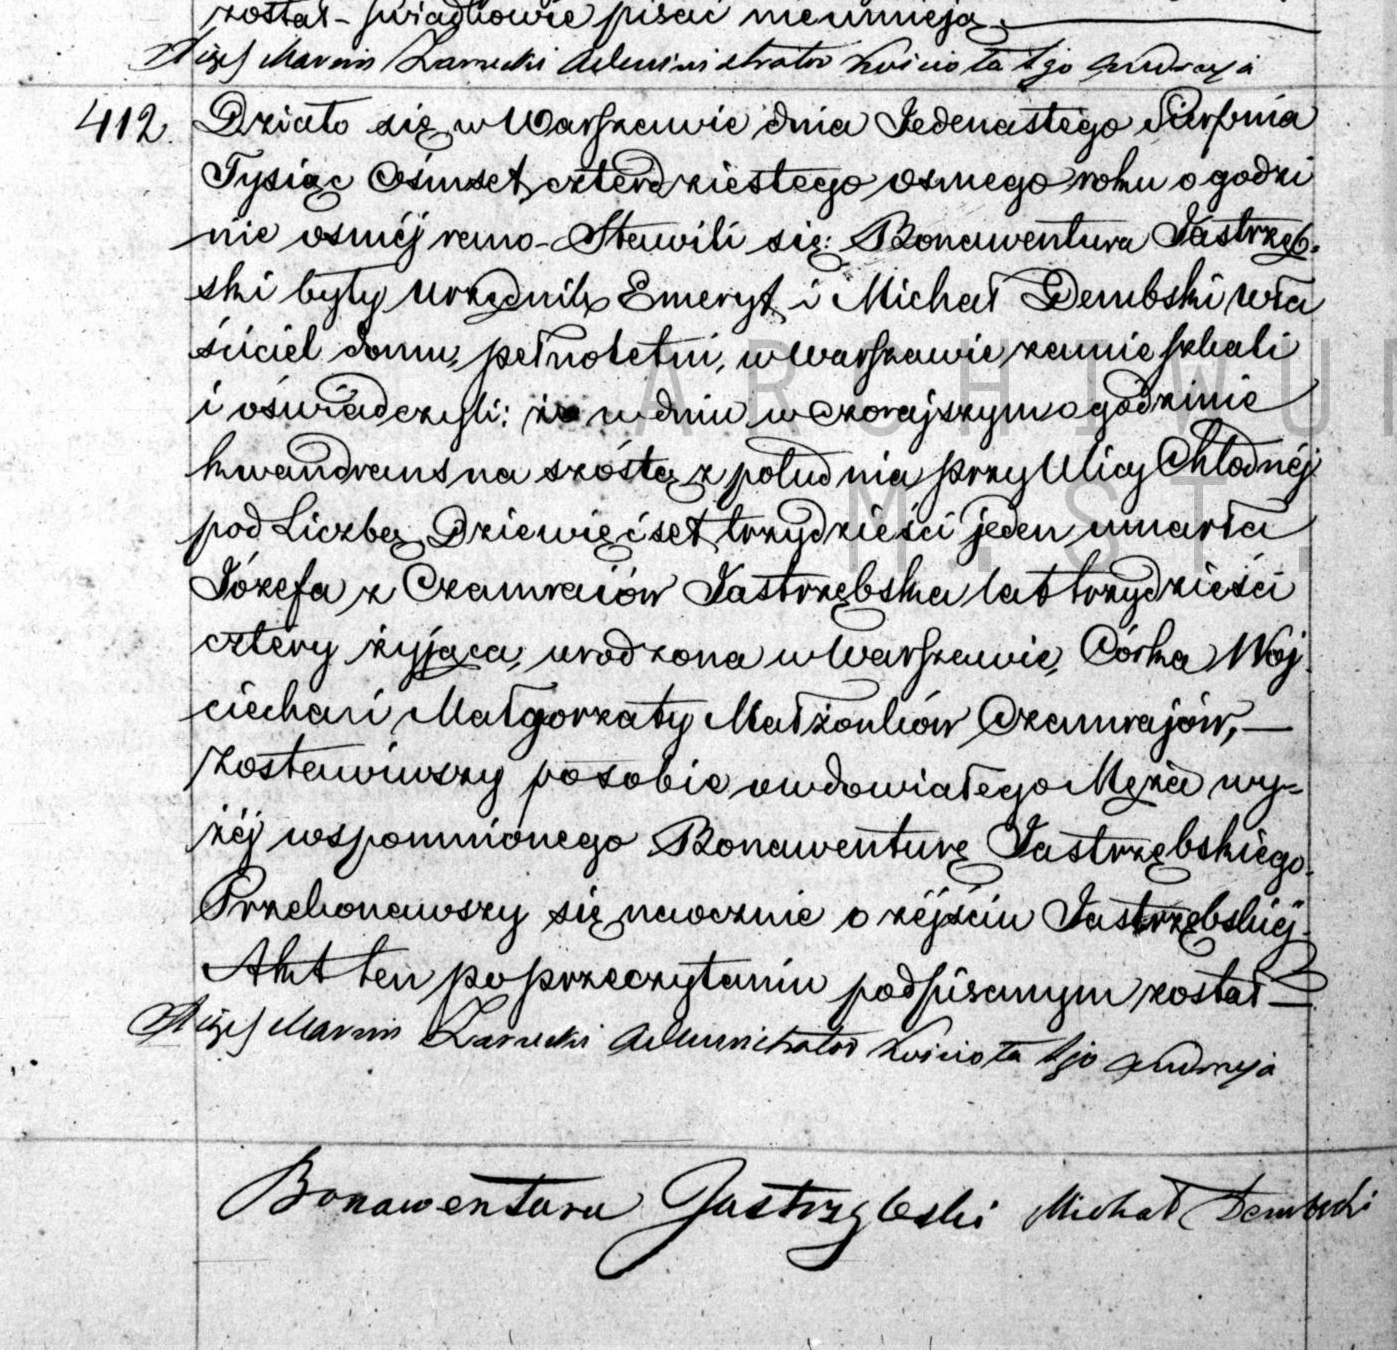 został – świadkowie pisać nieumieją.
Xiądz Marcin Zarnecki Administrator Kościoła Sgo Andrzeja
412. Działo się w Warszawie dnia Jedenastego Sierpnia
Tysiąc Ośmset czterdziestego osmego roku o godzi
nie osméj rano – Stawili się: Bonawentura Jastrzęb-
ski były urzędnik Emeryt, i Michał Dembski wła
ściciel domu, pełnoletni, w Warszawie zamieszkali
i oświadczyli: że w dniu wczorajszym o godzinie
kwandrans na szóstą z południa przy Ulicy Chłodnéj
pod Liczbą Dziewięćset trzydzieści jeden umarła
Józefa z Czamraiów Jastrzębska lat trzydzieści
cztery żyjąca, urodzona w Warszawie, Córka Woj
ciecha i Małgorzaty Małżonków Czamrajów, —
zostawiwszy po sobie owdowiałego Męża wy-
żéj wspomnionego Bonawenturę Jastrzębskiego.
Przekonawszy się naocznie o zéjściu Jastrzębskiéj.
Akt ten po przeczytaniu podpisanym został —
Xiądz Marcin Zarnecki Administrator Kościoła Sgo Andrzeja
Bonawentura Jastrzębski Michał Dembski
ARCHIWUM
M. ST.